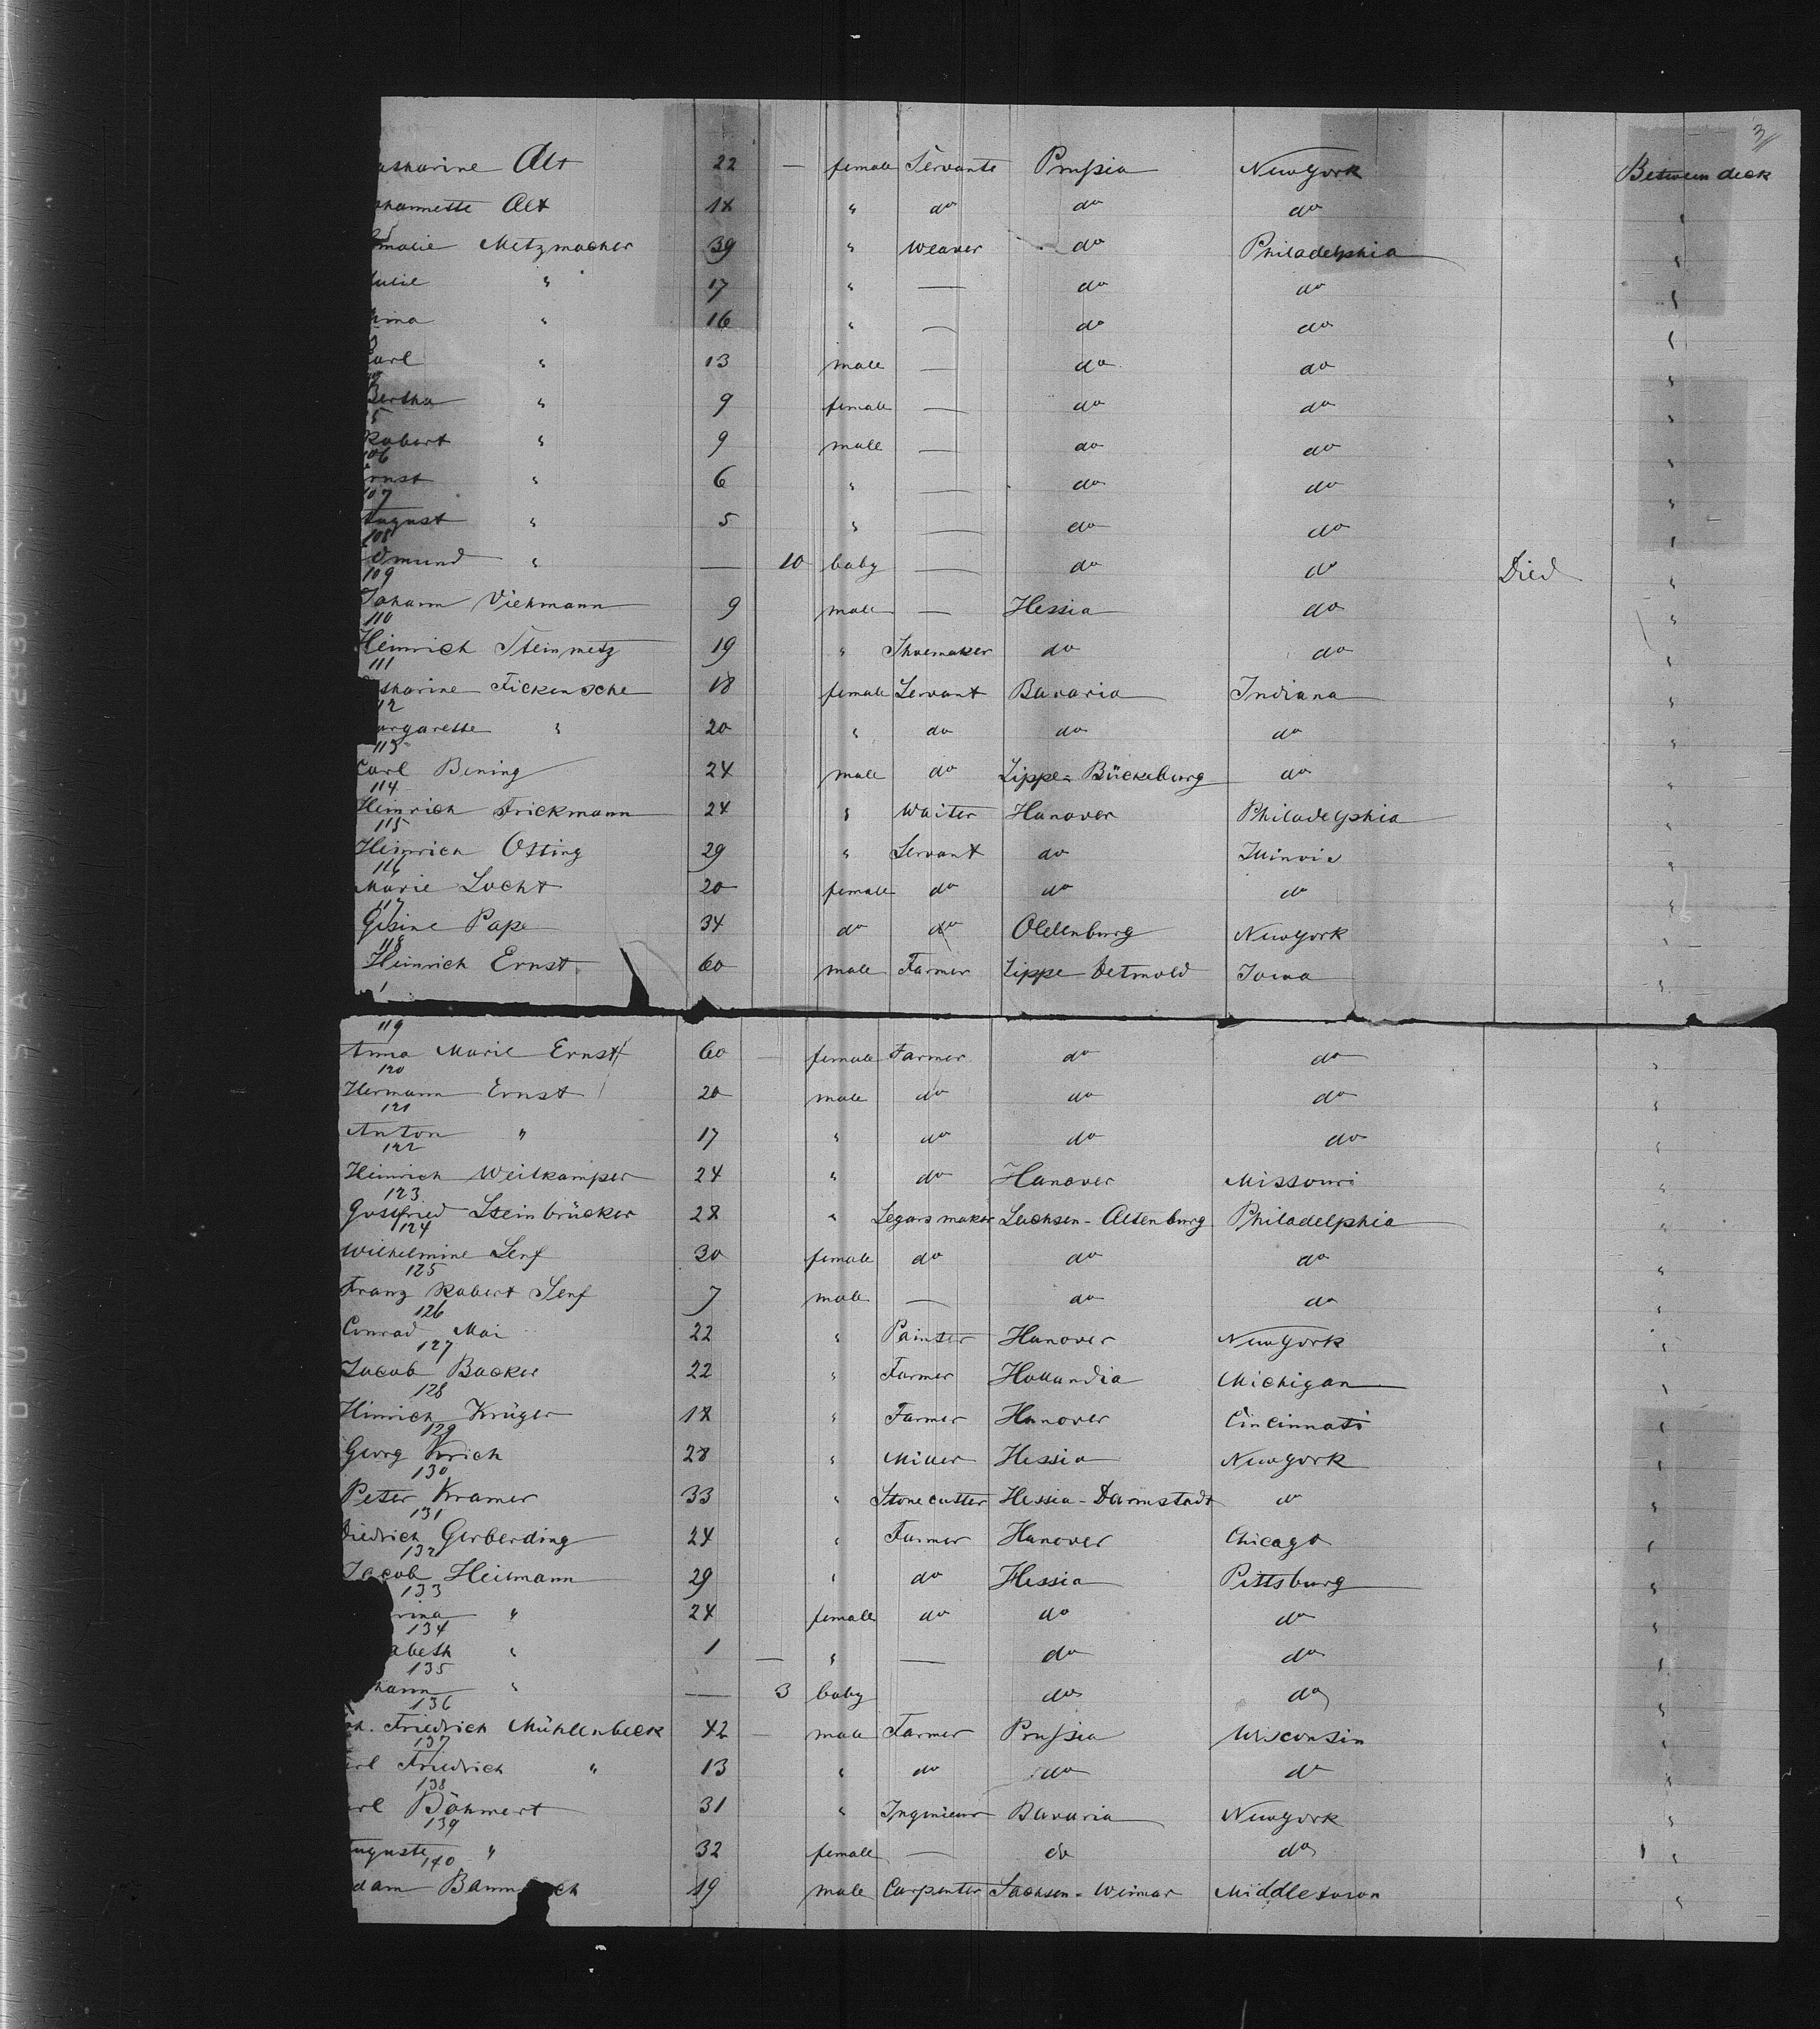 3
atharine Alt 22 — female Servante Prußia New York Between deck
ohannette Alt 18 " do do do "
malie Metzmacher 39 " Weaver do Philadelphia "
Julie " 17 " — do do "
mina " 16 " — do do "
Carl " 13 male — do do "
Bertha " 9 female — do do "
5
Robert " 9 male — do do "
106
Ernst " 6 " — do do "
107
August " 5 " — do do "
108
Edmund " — 10 baby — do do Died "
109
Johann Viehmann 9 male — Hessia do "
110
Heinrich Steinmetz 19 " Shoemaker do do "
111
atharine Fickensche 18 female Servant Bavaria Indiana "
112
argarethe " 20 " do do do "
113
Carl Bening 24 male do Lippe-Bückeburg do "
114
Heinrich Frickmann 24 " Waiter Hanover Philadelphia "
115
Heinrich Osting 29 " Servant do Illinois "
116
Marie Locht 20 female do do do "
117
Gesine Pape 34 do do Oldenburg New York "
118
Heinrich Ernst 60 male Farmer Lippe Detmold Iowa "
119
Anna Marie Ernst 60 — female Farmer do do "
120
Hermann Ernst 20 male do do do "
121
Anton " 17 " do do do "
122
Heinrich Weitkamper 24 " do Hanover Missouri "
123
Gottfried Steinbrücker 28 " Segars maker Sachsen-Altenburg Philadelphia "
124
Wilhelmine Senf 30 female do do do "
125
Franz Robert Senf 7 male — do do "
126
Conrad Mai 22 " Painter Hanover New York "
127
Jacob Backer 22 " Farmer Hollandia Michigan "
128
Hinrich Krüger 18 " Farmer Hanover Cincinnati "
129
Georg Krich 28 " Miller Hessia New York "
130
Peter Kramer 33 " Stonecutter Hessia-Darmstadt do "
131
Diedrich Gerberding 24 " Farmer Hanover Chicago "
132
Jacob Heilmann 29 " do Hessia Pittsburg "
133
rina " 24 female do do do "
134
abeth " 1 — " — do do "
135
hann " — 3 baby do do "
136
oh. Friedrich Mühlenbeck 42 — male Farmer Prußia Wisconsin "
137
arl Friedrich " 13 " do do do "
138
arl Böhmert 31 " Ingenieur Bavaria New York "
139
Auguste " 32 female — do do "
140
dam Baum ch 19 male Carpenter Sachsen-Weimar Middletown "